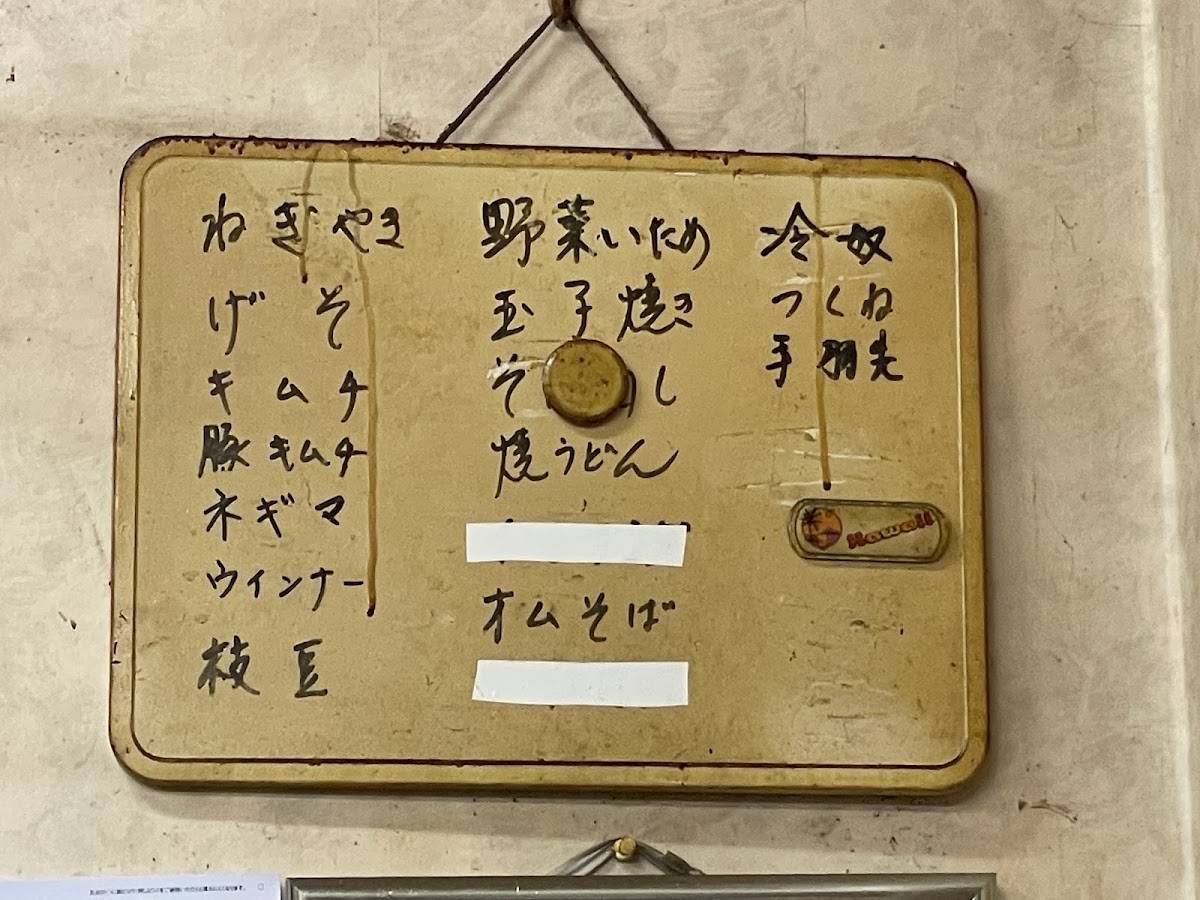 ねぎやき
げそ
キムチ
豚キムチ
ネギマ
ウインナー
枝豆
野菜いため
玉子焼き
そ し
焼うどん
オムそば
冷奴
つくね
手羽先
Hawaii